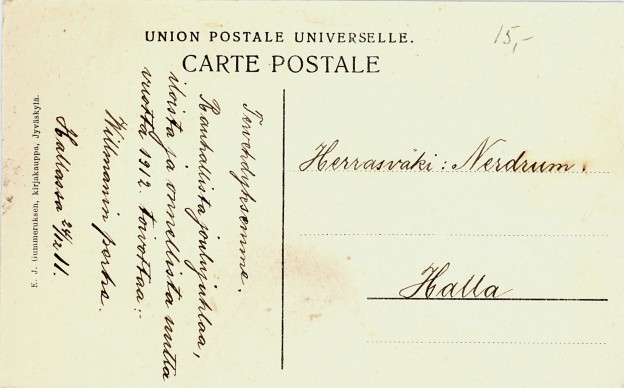 UNION POSTALE UNIVERSELLE.
CARTE POSTALE
15,-
Tervehdyksemme.
Rauhallista joulujuhlaa,
iloista ja onnellista uutta
vuotta 1912. toivottaa:
Willmanin porhe.
Hallassa 24/12 11.
Herrasväki: Nerdrum.
Halla
K. J. Gummeruksen, kirjakauppa, Jyväskylä.